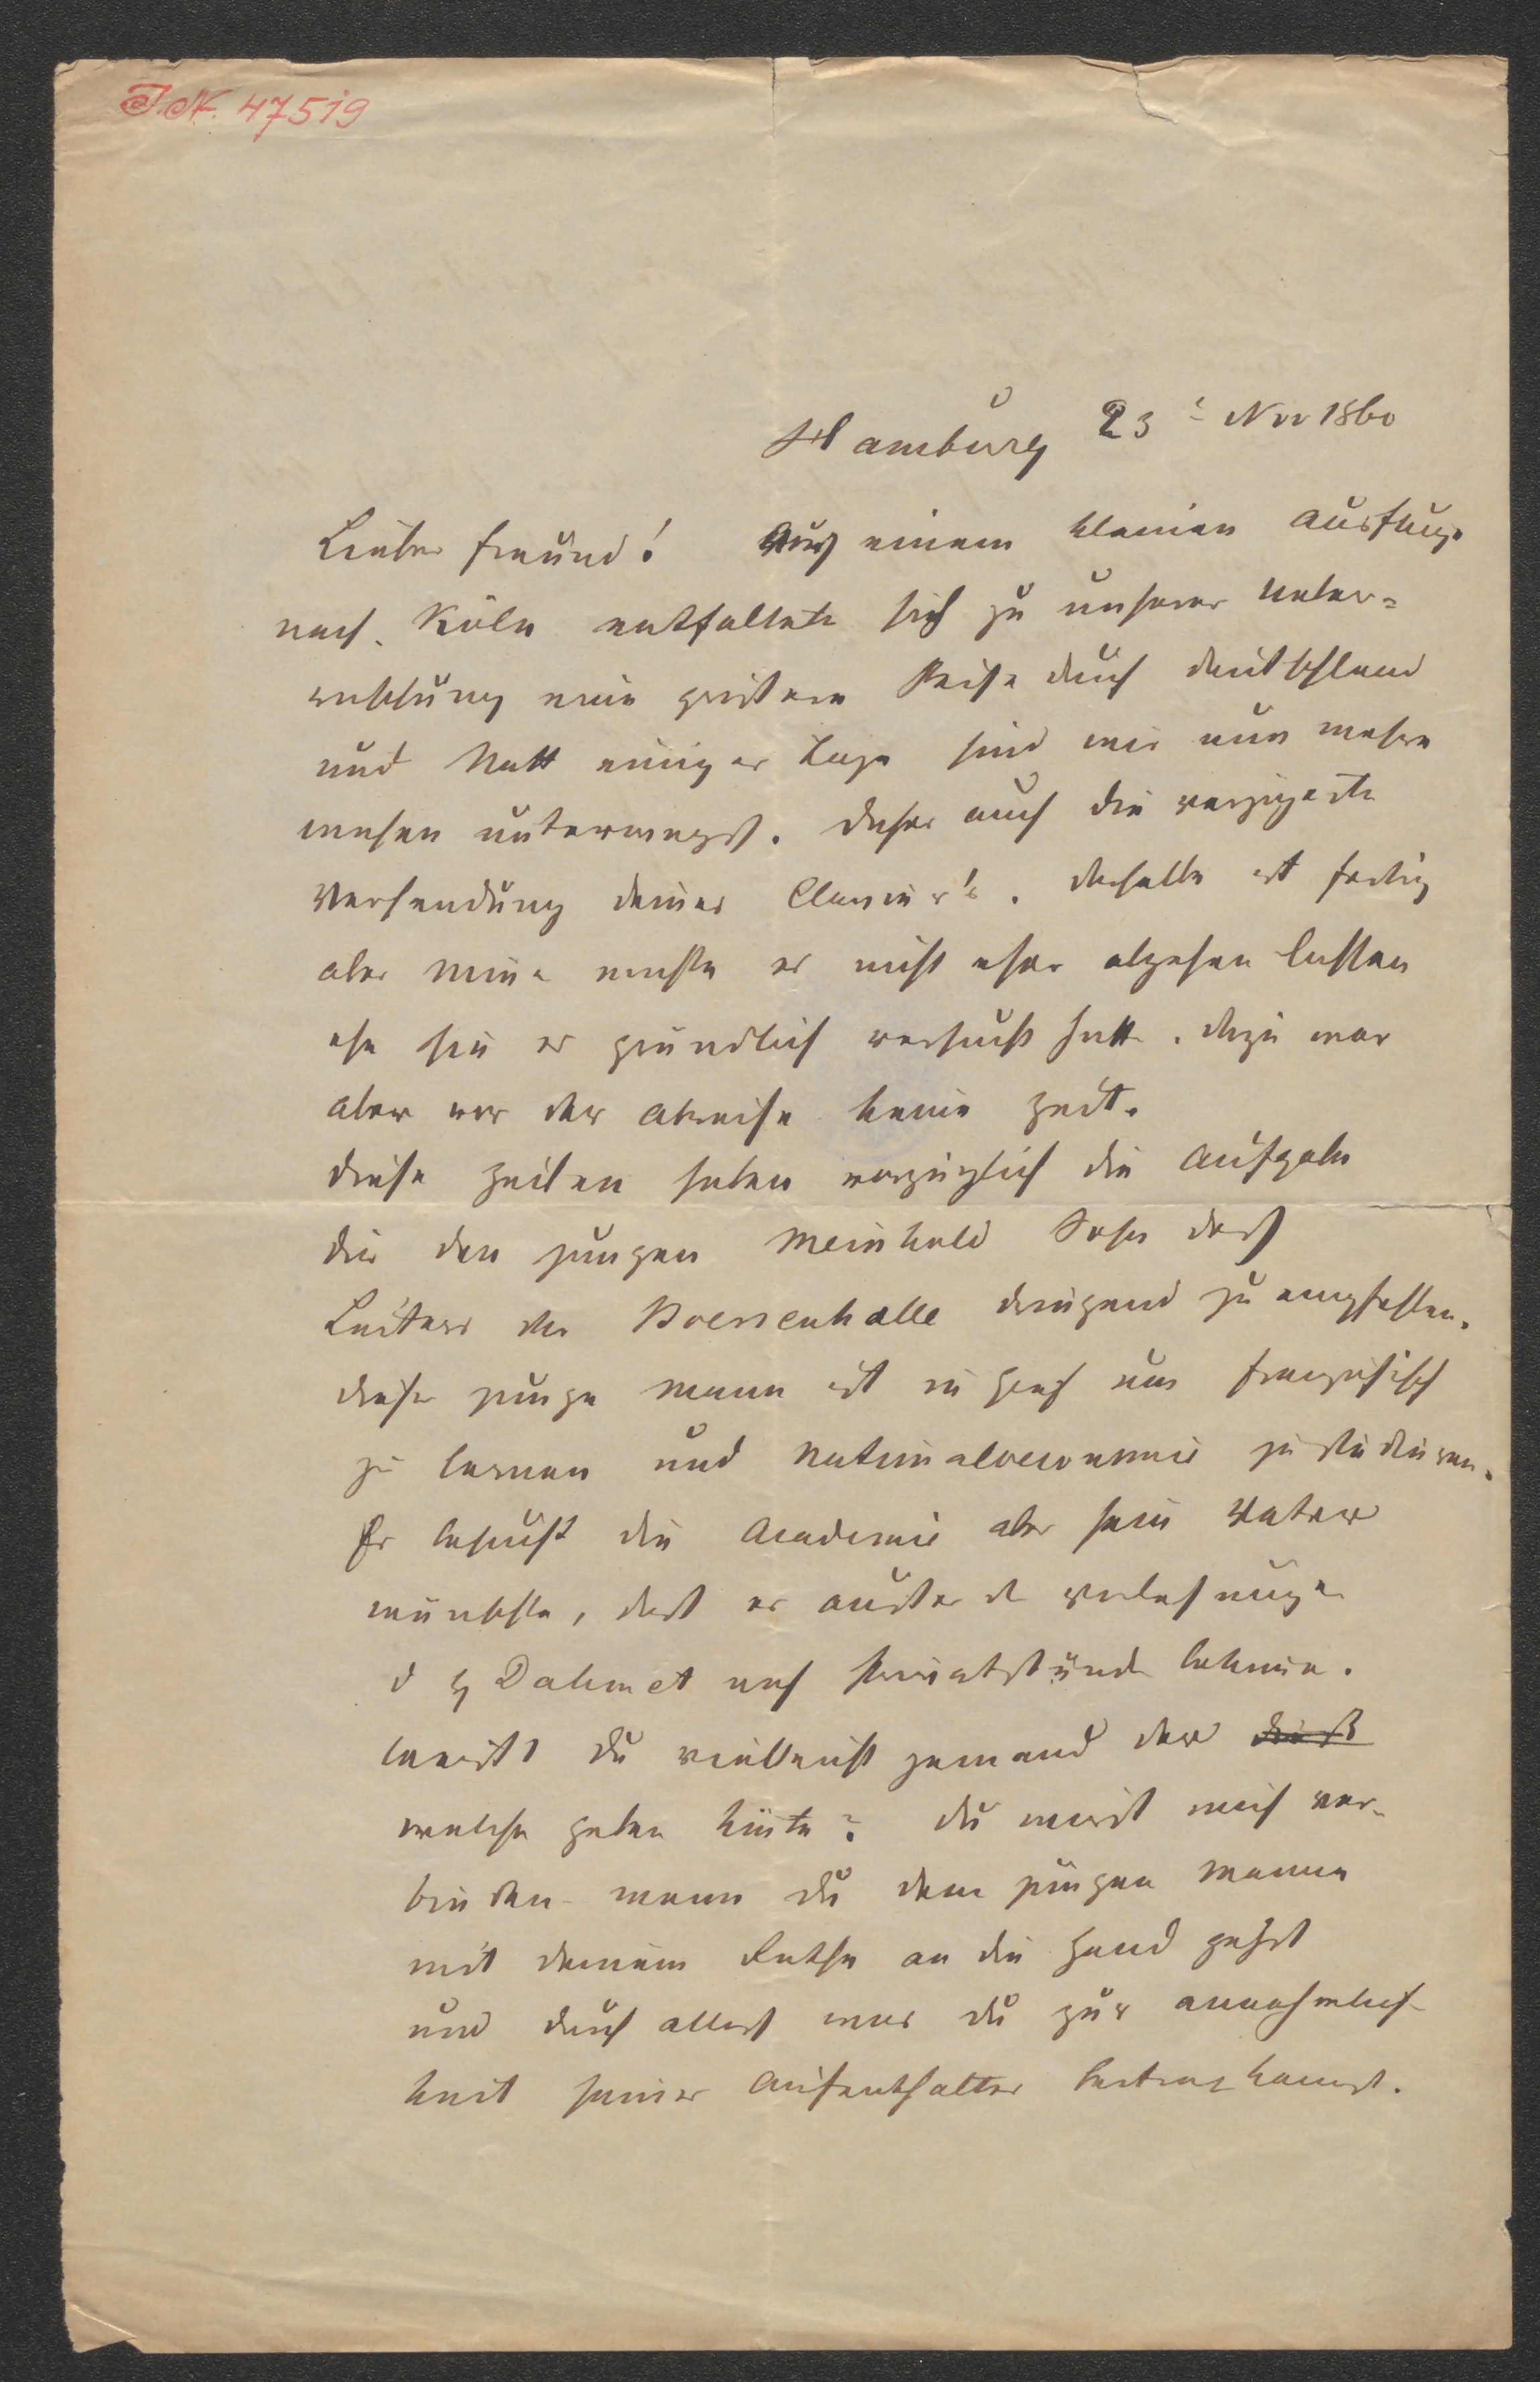 J.N. 47519
Hamburg 23t Nov 1860
Lieber Freund! Aus einem kleinen Ausfluge
nach Köln entfaltete sich zu unserer Ueber=
raschung eine grössere Reise durch Deutschland
und statt einiger Tage sind wir nun mehre
Wochen unterwegs. Daher auch die verzögerte
Versendung deines Clavier's. Dasselbe ist fertig
aber wollte es nicht eher abgehen lassen
ehe sie es gründlich versucht hatte. Dazu war
aber vor der Abreise keine Zeit.
Diese Zeilen haben vorzüglich die Aufgabe
dir den jungen Meinhold Sohn des
Leiters der Boersenhalle dringend zu empfehlen.
Dieser junge Mann ist in Genf um französisch
zu lernen und Nationaloeconomie zu studieren.
Er besucht die Academie aber sein Vater
wünschte, dass er ausser den Vorlesungen
d H Dameth noch Privatstunden bekäme.
Weisst du vielleicht jemand der
welche geben könnte? Du wirst mich ver=
binden wenn du dem jungen Manne
mit deinem Rathe an die Hand gehst
und durch alles was du zur Annehmlich
keit seines Aufenthaltes beitragen kannst.